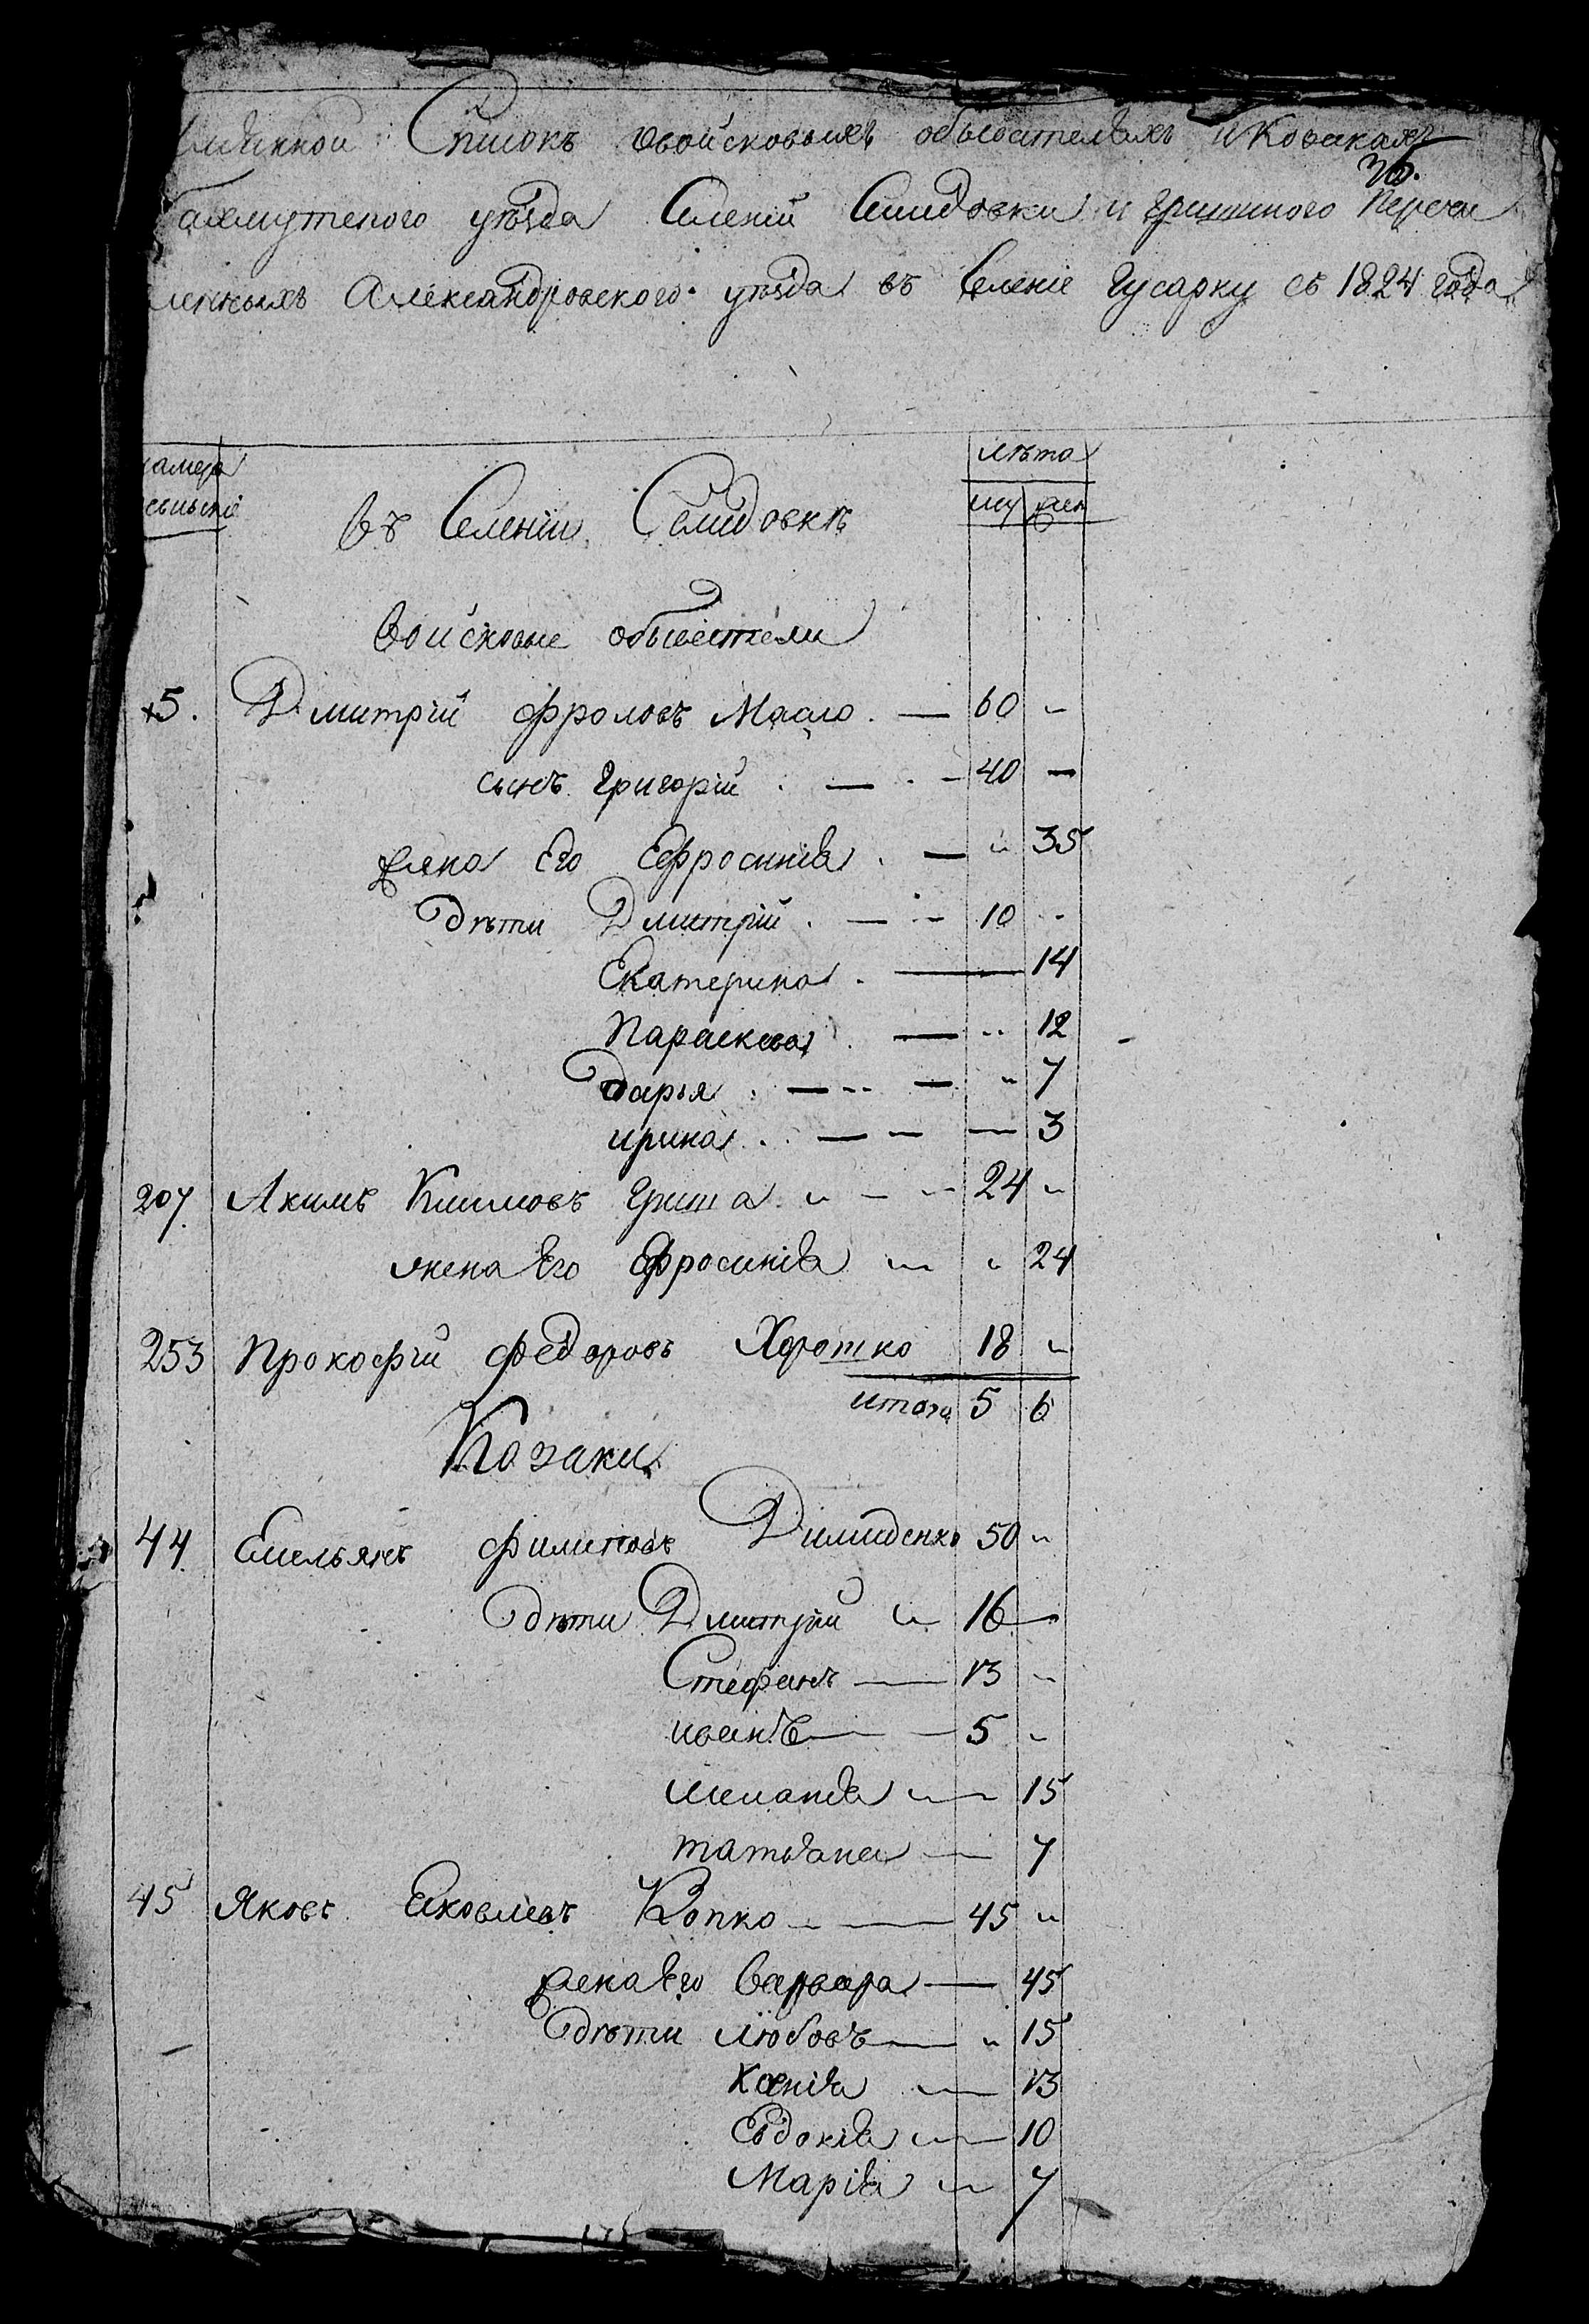 Списокъ Овойсковыхъ обывателяхъ иКозакахъ
36.
Бахмутского уѣзда Селеній Селидовки и гришиного Пересе
ленныхъ Александровского уѣзда въ Селеніе Гусарку съ 1824 года
намера лѣта
му жен
въ Селеніи Селидовкѣ
войсковые обыватели
5. Дмитрій Фроловъ Масло 60
сынъ Григорій 40
жена Его Ефросинія 35
дѣти Дмитрій 10
Екатерина 14
Параскева 12
дарья 7
ирина 3
207 Акимъ Климовъ Гриша 24
жена Его Ефросинія 24
253 Прокофій Федоровъ Хоротко 18
итого 5 6
Козаки
44 Емельянъ Филиповъ Димиденко 50
дѣти Дмитрій 16
Стефанъ 13
иванъ 5
меланія 15
татіана 7
45 Яковъ Яковлевъ Копко 45
жена Его варвара 45
дѣти любовъ 15
Ксенія 13
Евдокія 10
Марія 7